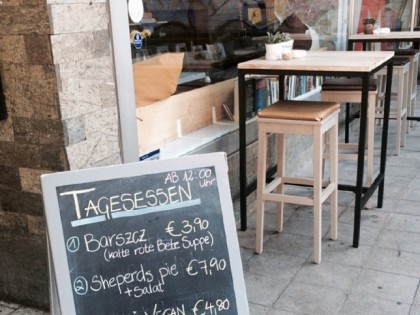 AB 12:00 Uhr
TAGESESSEN
① Barszcz €3,90
(kalte rote Bete Suppe)
② Sheperds pie €7,90
+ Salat
VEGAN €4,80